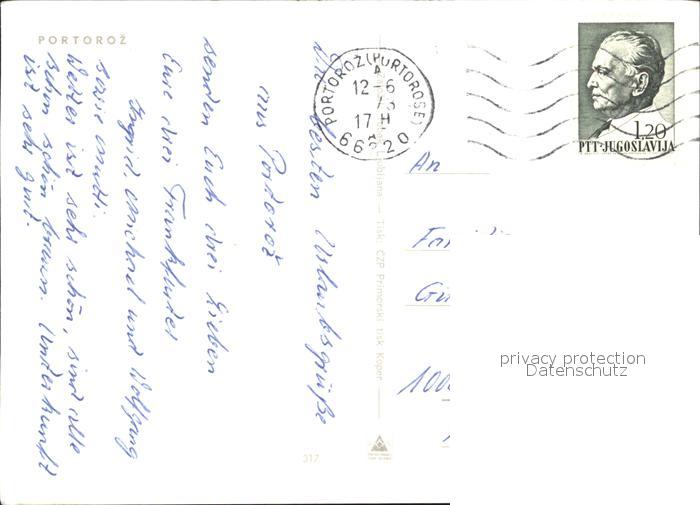 PORTOROŽ
Die besten Urlaubsgrüße
aus Portorož
senden Euch drei Lieben
Eure drei Frankfurter
Ingrid, Michael und Wolfgang
sowie Mutti.
Wetter ist sehr schön, sind alle
schon schön braun. Unterkunft
ist sehr gut.
PORTOROŽ (PORTOROSE)
A
12-6
73
17 H
66320
1.20
PTT-JUGOSLAVIJA
An
Ljubljana — Tisk: ČZP Primorski tisk Koper
317
privacy protection
Datenschutz